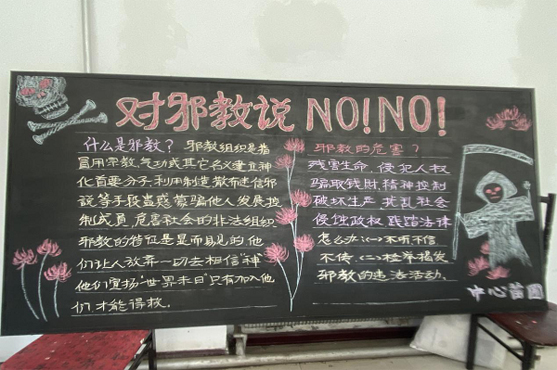 对邪教说 NO!NO!
什么是邪教? 邪教组织是指
冒用宗教、气功或其它名义建立神
化首要分子,利用制造、散布迷信邪
说等手段蛊惑、蒙骗他人发展控
制成员,危害社会的非法组织.
邪教的特征是显而易见的,他
们让人放弃一切去相信"神"
他们宣扬"世界末日"只有加入他
们,才能得救.
邪教的危害?
残害生命,侵犯人权
骗取钱财 精神控制
破坏生产 扰乱社会
侵蚀政权 践踏法律
怎么办:(一)不听不信
不传 (二) 检举揭发
邪教的违法活动.
中心苗圃